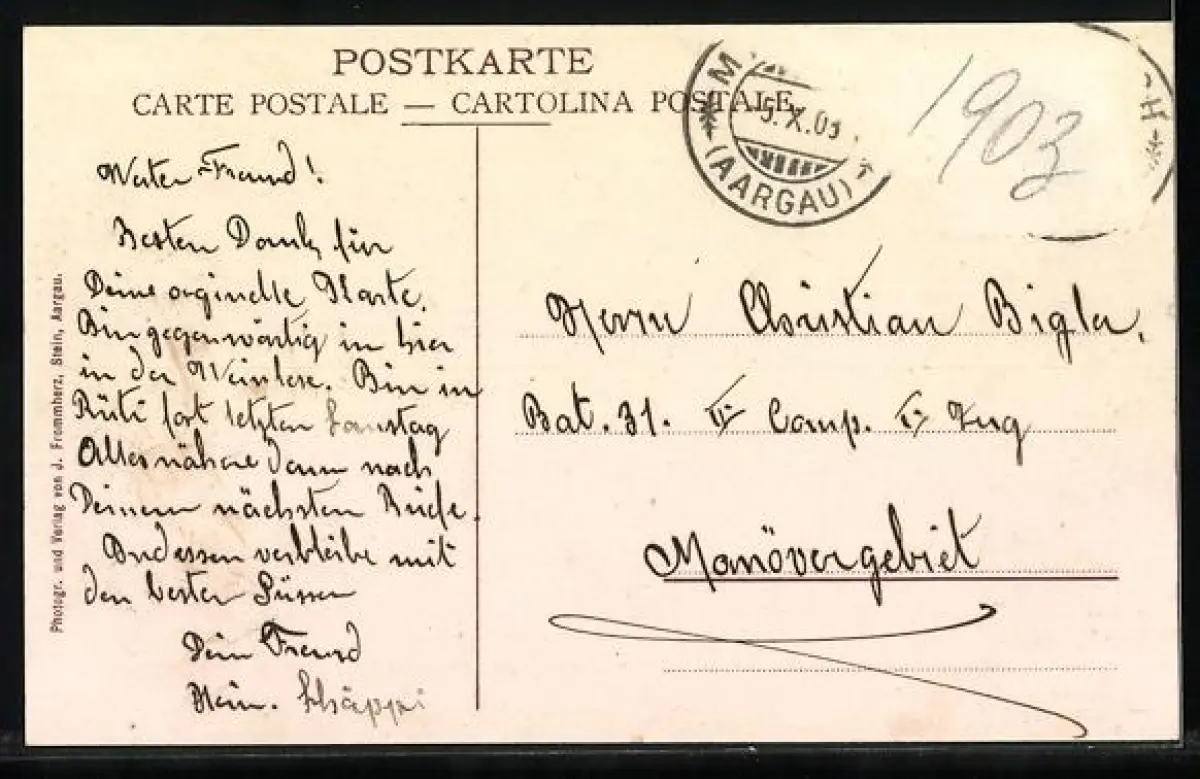 POSTKARTE
CARTE POSTALE — CARTOLINA POSTALE
M
5.X.09
(AARGAU)
1903
Photogr. und Verlag von J. Frommherz, Stein, Aargau.
Werter Freund!
Besten Dank für
Deine orginelle Karte.
Bin gegenwärtig in hier
in der Weinlese. Bin in
Rüti fort letzten Samstag
Alles nähere dann nach
Deinem nächsten Briefe.
Indessen verbleibe mit
den besten Grüssen
Dein Freund
Schäppi
Herrn Christian Bigler,
Bat. 31. II. Comp. I. Zug
Manövergebiet